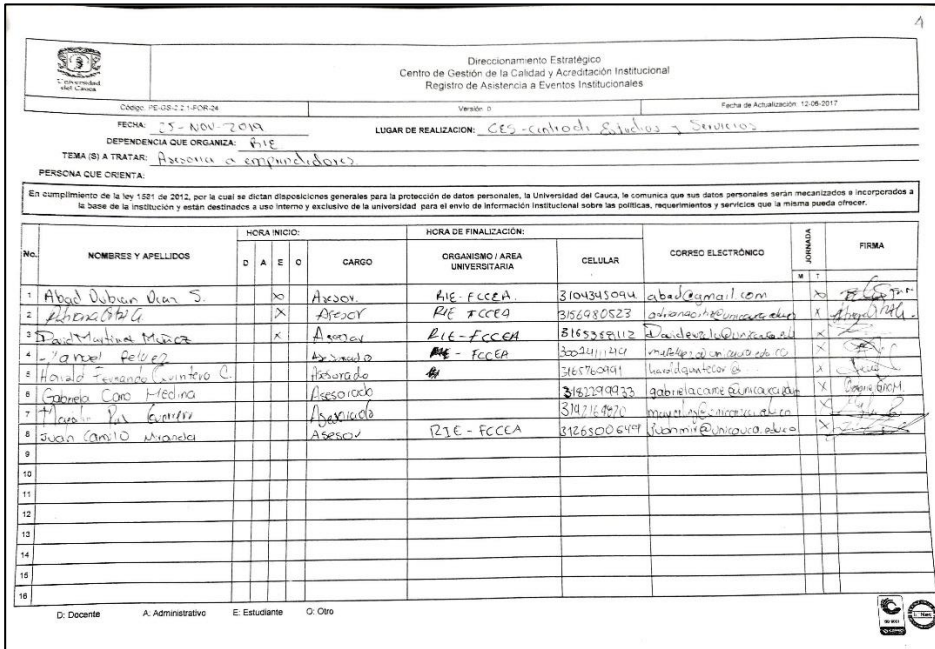 4
Universidad
del Cauca
Direccionamiento Estratégico
Centro de Gestión de la Calidad y Acreditación Institucional
Registro de Asistencia a Eventos Institucionales
Código: PE-GS-2.2.1-FOR-24 Versión: 0 Fecha de Actualización: 12-06-2017
FECHA: 25-NOV-2019 LUGAR DE REALIZACIÓN: CES - Centro de Estudios y Servicios
DEPENDENCIA QUE ORGANIZA: RIE
TEMA (S) A TRATAR: Asesoria a emprendedores
PERSONA QUE ORIENTA:
En cumplimiento de la ley 1581 de 2012, por la cual se dictan disposiciones generales para la protección de datos personales, la Universidad del Cauca, le comunica que sus datos personales serán mecanizados e incorporados a
la base de la institución y están destinados a uso interno y exclusivo de la universidad para el envío de información institucional sobre las políticas, requerimientos y servicios que la misma pueda ofrecer.
HORA INICIO: HORA DE FINALIZACIÓN:
No. NOMBRES Y APELLIDOS D A E O CARGO ORGANISMO / AREA UNIVERSITARIA CELULAR CORREO ELECTRÓNICO JORNADA FIRMA
M T
1 Abad Dubian Diaz S. X Asesor. RIE-FCCEA. 3104345094 abad@gmail.com X
2 X Asesor RIE FCCEA 3156980523 X
3 David Martinez Muñoz X Asesor RIE-FCCEA X
4 Asesorado - FCCEA X
5 Harold Fernando Quintero C. Asesorado 3165760991 X
6 Gabriela Caro Medina Asesorado 3182299933 X
7 Asesorado X
8 Juan Camilo Miranda Asesor RIE-FCCEA 3126500649 juanmir@unicauca.edu.co X
9
10
11
12
13
14
15
16
D: Docente A: Administrativo E: Estudiante O: Otro